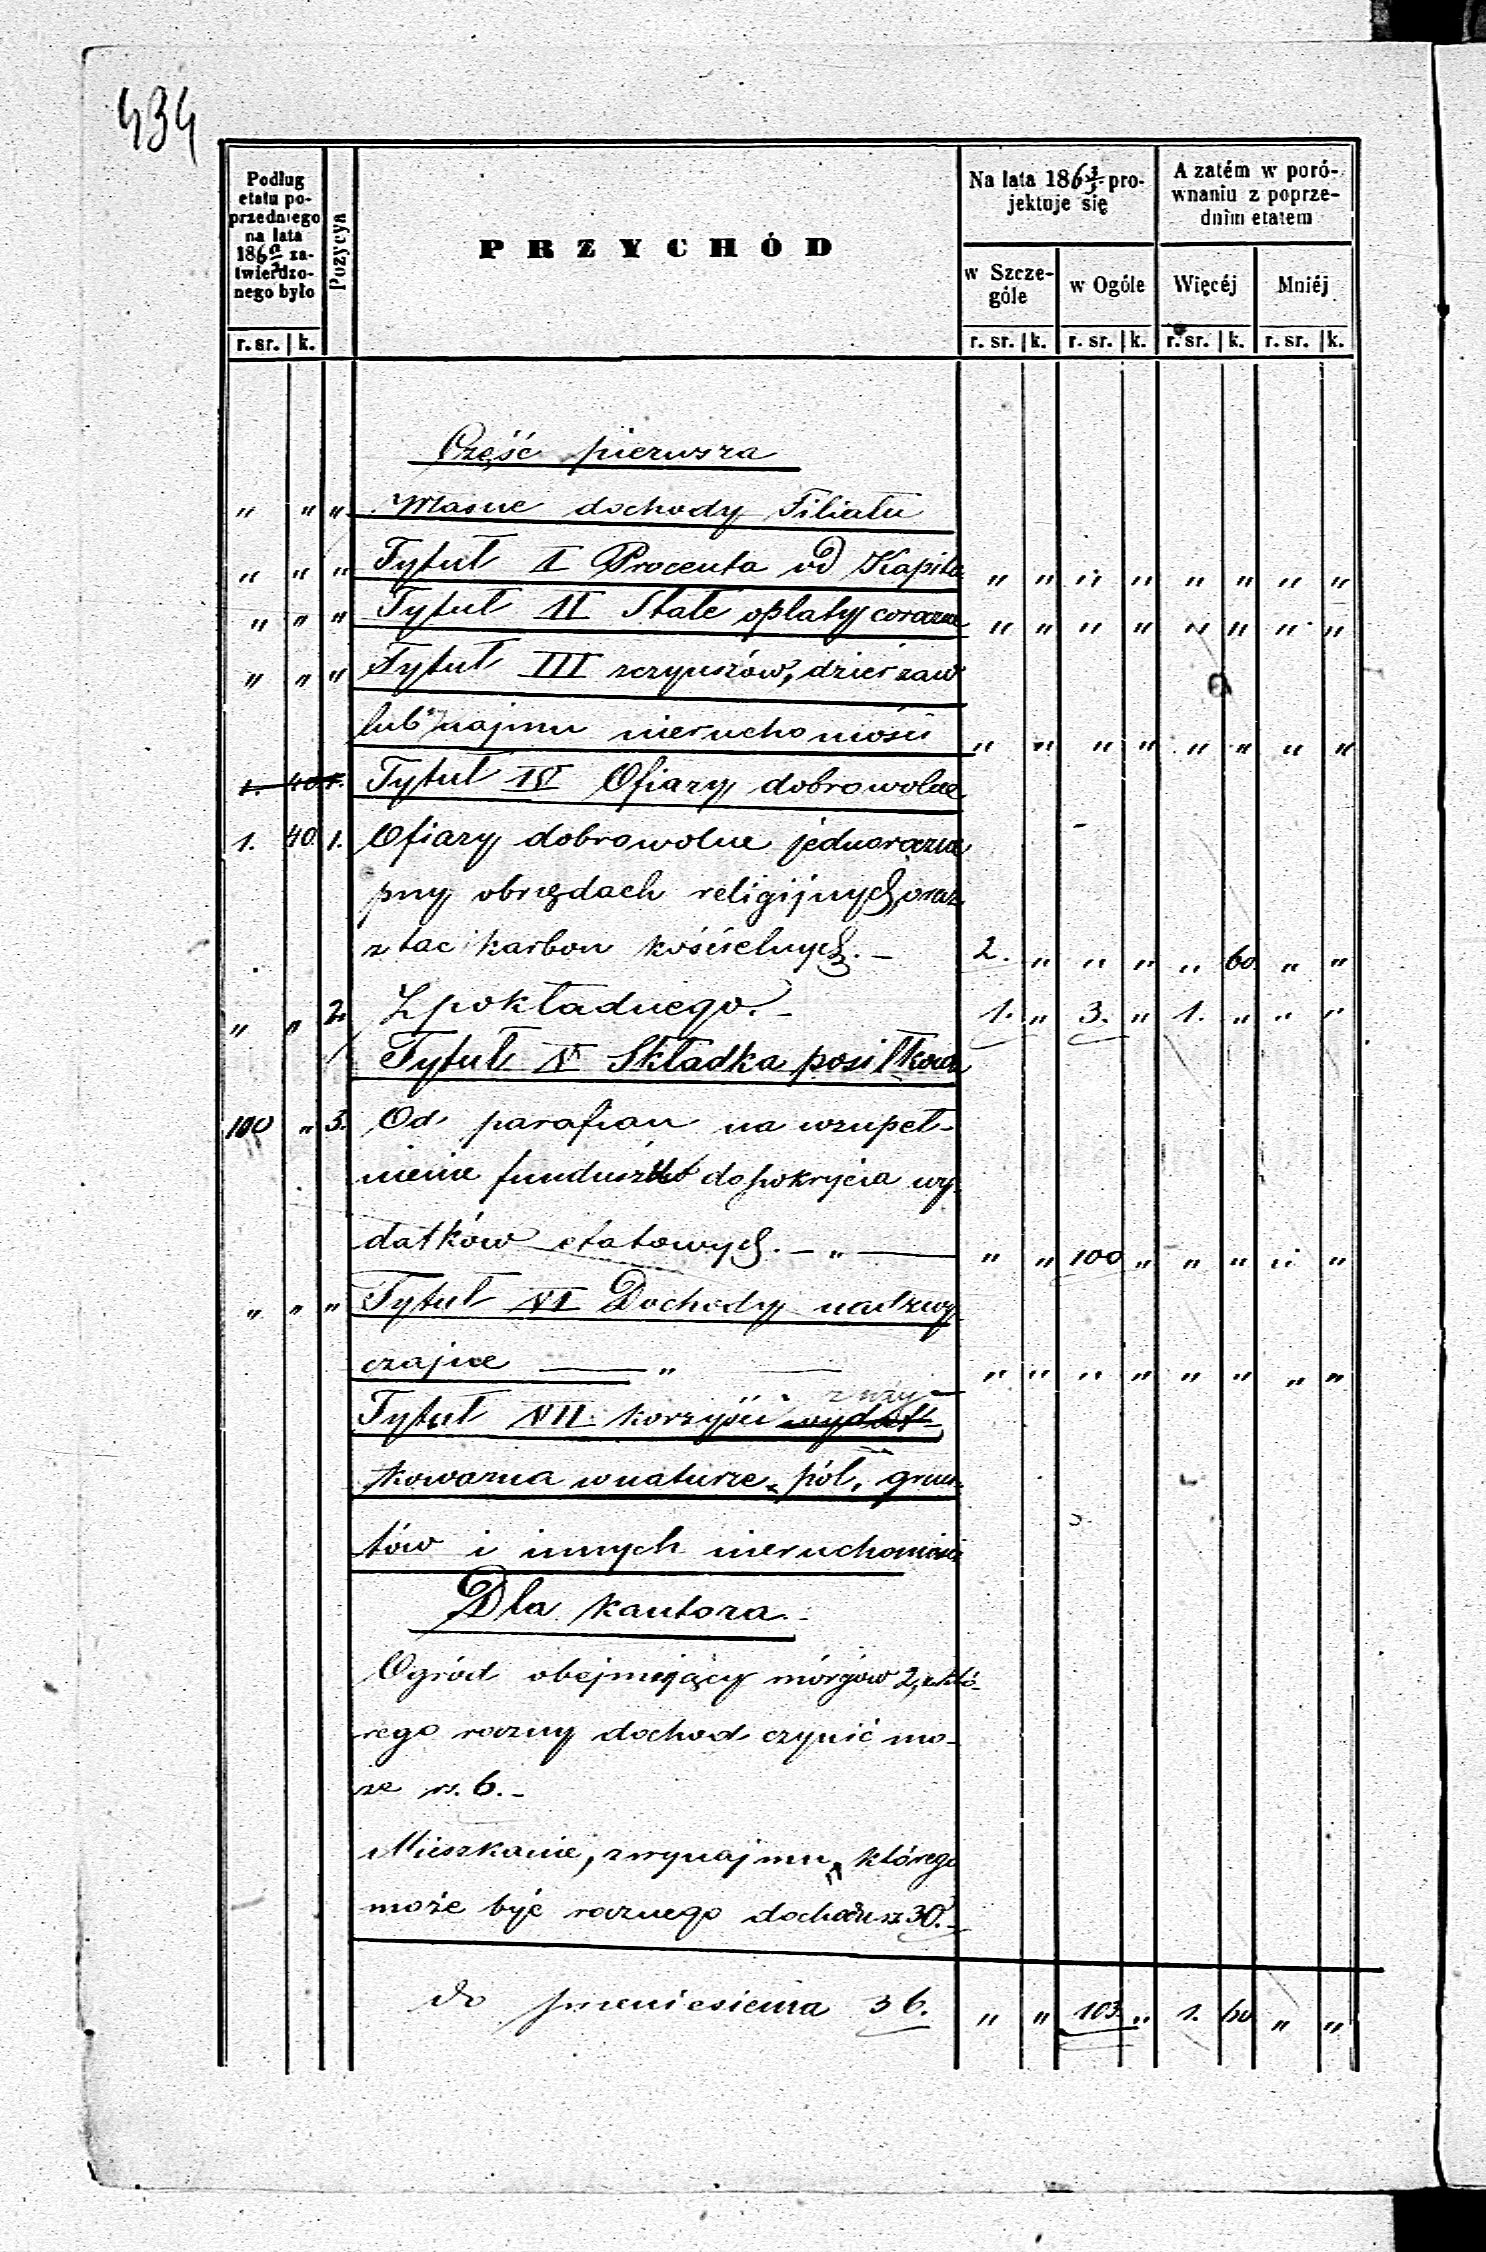 434
Podług etatu poprzedniego na lata 186 zatwierdzonego było
Pozycya
PRZYCHÓD
Na lata 186 3/5 projektuje się
A zatém w porównaniu z poprzednim etatem
w Szczególe w Ogóle Więcéj Mniéj
r. sr. k. r. sr. k. r. sr. k. r. sr. k. r. sr. k.
Część pierwsza
" " " Własne dochody Filiału
" " " Tytuł I Procenta od Kapita " " " " " " " "
" " " Tytuł II Stałe opłaty coroczne " " " " " " " "
" " " Tytuł III z czynszów, dzierżaw
lub najmu nieruchomości " " " " " " " "
1. 40 1. Tytuł IV Ofiary dobrowolne
1. 40 1. Ofiary dobrowolne jednorazowe
przy obrzędach religijnych, oraz
z tac i karbon kościelnych. – 2. " " " " 60 " "
" " 2. Z pokładnego. – 1. " 3. " 1. " " "
Tytuł V Składka posiłkowa
100 " 3. Od parafian na uzupeł-
nienie funduszu do pokrycia wy-
datków etatowych. – " – " " 100 " " " " "
" " " Tytuł VI Dochody nadzwy-
czajne — " — " " " " " " " "
Tytuł VII korzyści z uży-
kowania w naturze pól, grun-
tów i innych nieruchomości
Dla kantora.
Ogród obejmujący mórgów 2, z któ-
rego roczny dochod czynić mo-
że rs. 6. –
Mieszkanie, z wynajmu którego
może być rocznego dochodu rs 30. –
do przeniesienia 36. " " 103. " 1. 60 " "